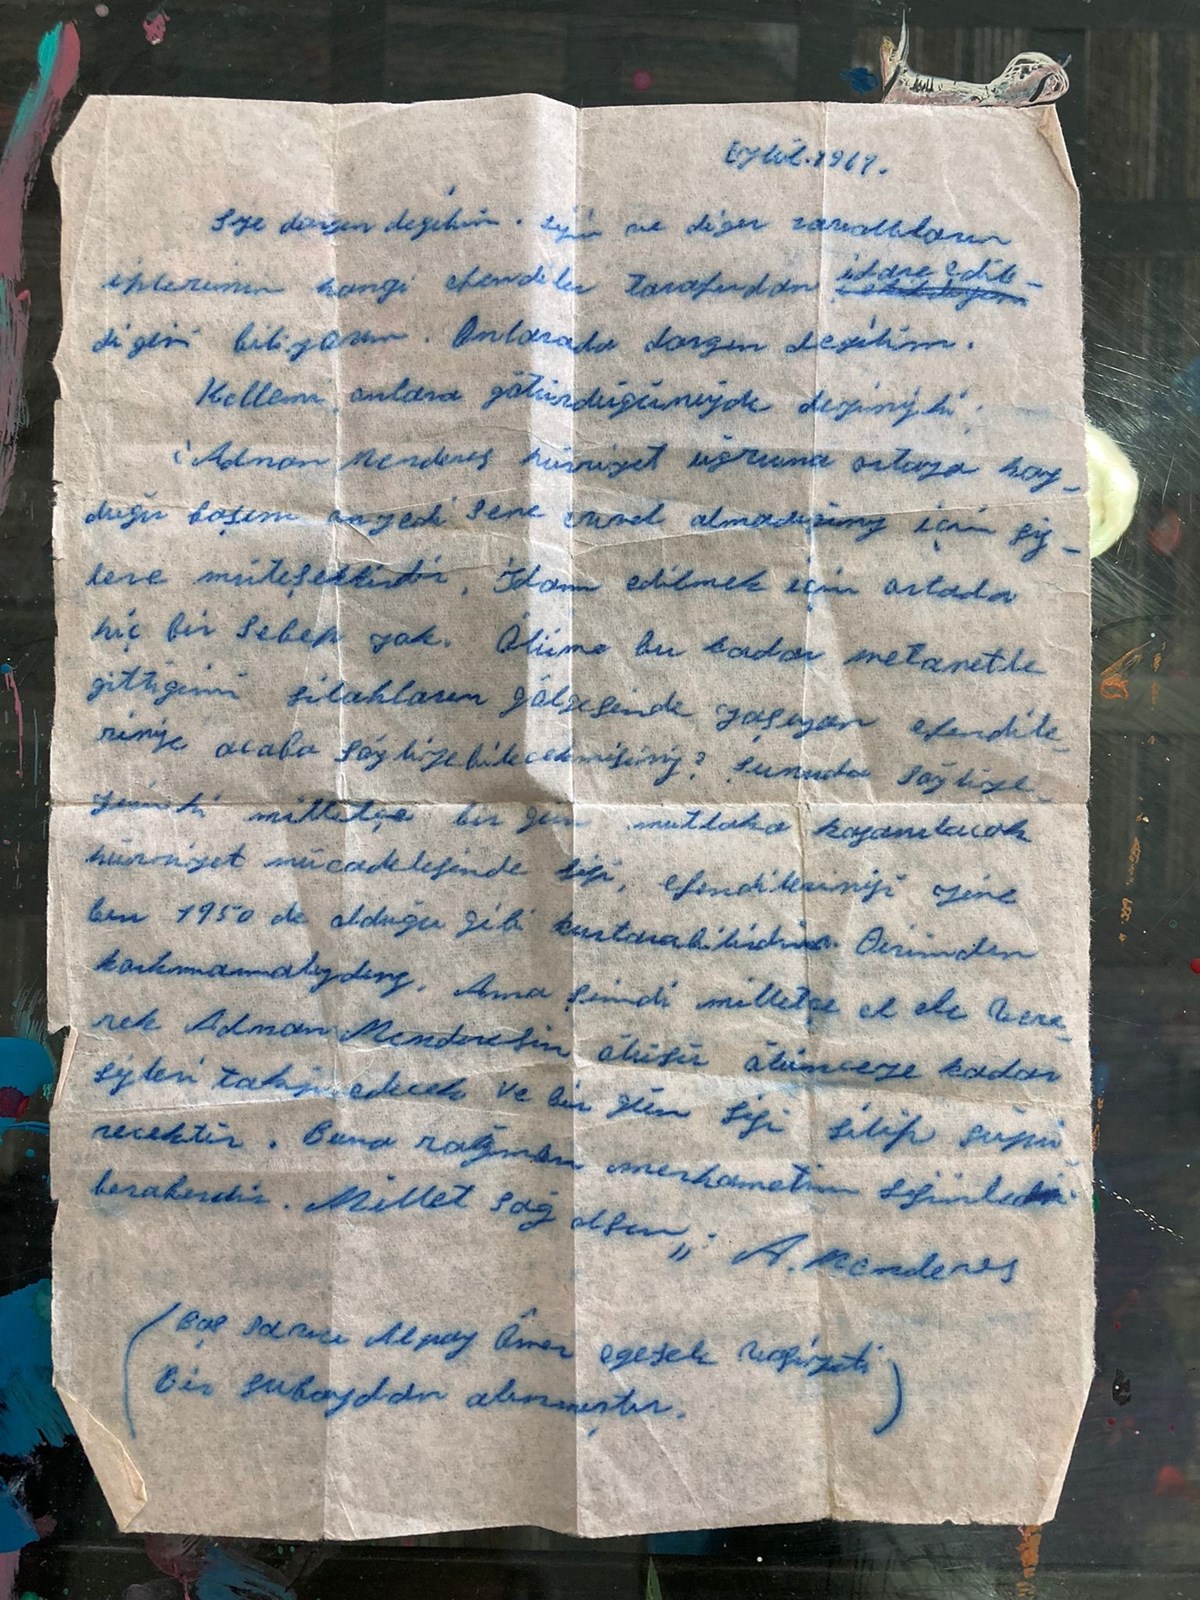 Eylül.1961.
Size dargın değilim. Sizin ve diğer zavallıların
iplerinin hangi efendiler tarafından idare edil-
diğini biliyorum. Onlarada dargın değilim.
Kellemi onlara götürdüğünüzde deyiniz ki;
Adnan Menderes hürriyet uğruna ortaya koy-
duğu başını onyedi sene evvel almadığınız için siz-
lere müteşekkirdir. İdam edilmek için ortada
hiç bir sebep yok. Ölüme bu kadar metanetle
gittiğimi silahların gölgesinde yaşayan efendile-
rinize acaba söyliyebilecekmisiniz? Şunuda söyliye-
yimki milletçe bir gün mutlaka kazanılacak
hürriyet mücadelesinde sizi, efendilerinizi yine
ben 1950 de olduğu gibi kurtarabilirdim. Dirimden
korkmamalıydınız. Ama şimdi milletçe el ele vere-
rek Adnan Menderesin ölüsü ölünceye kadar
sizleri takip edecek ve bir gün sizi silip süpü-
recektir. Buna rağmen merhametim sizinle
beraberdir. Millet sağ olsun„. A. Menderes
(Baş Alpay Ömer Egesel
Bir subaydan alınmıştır.)